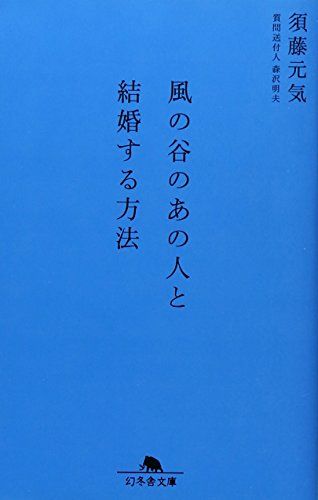 須藤元気
質問送付人 森沢明夫
風の谷のあの人と
結婚する方法
幻冬舎文庫